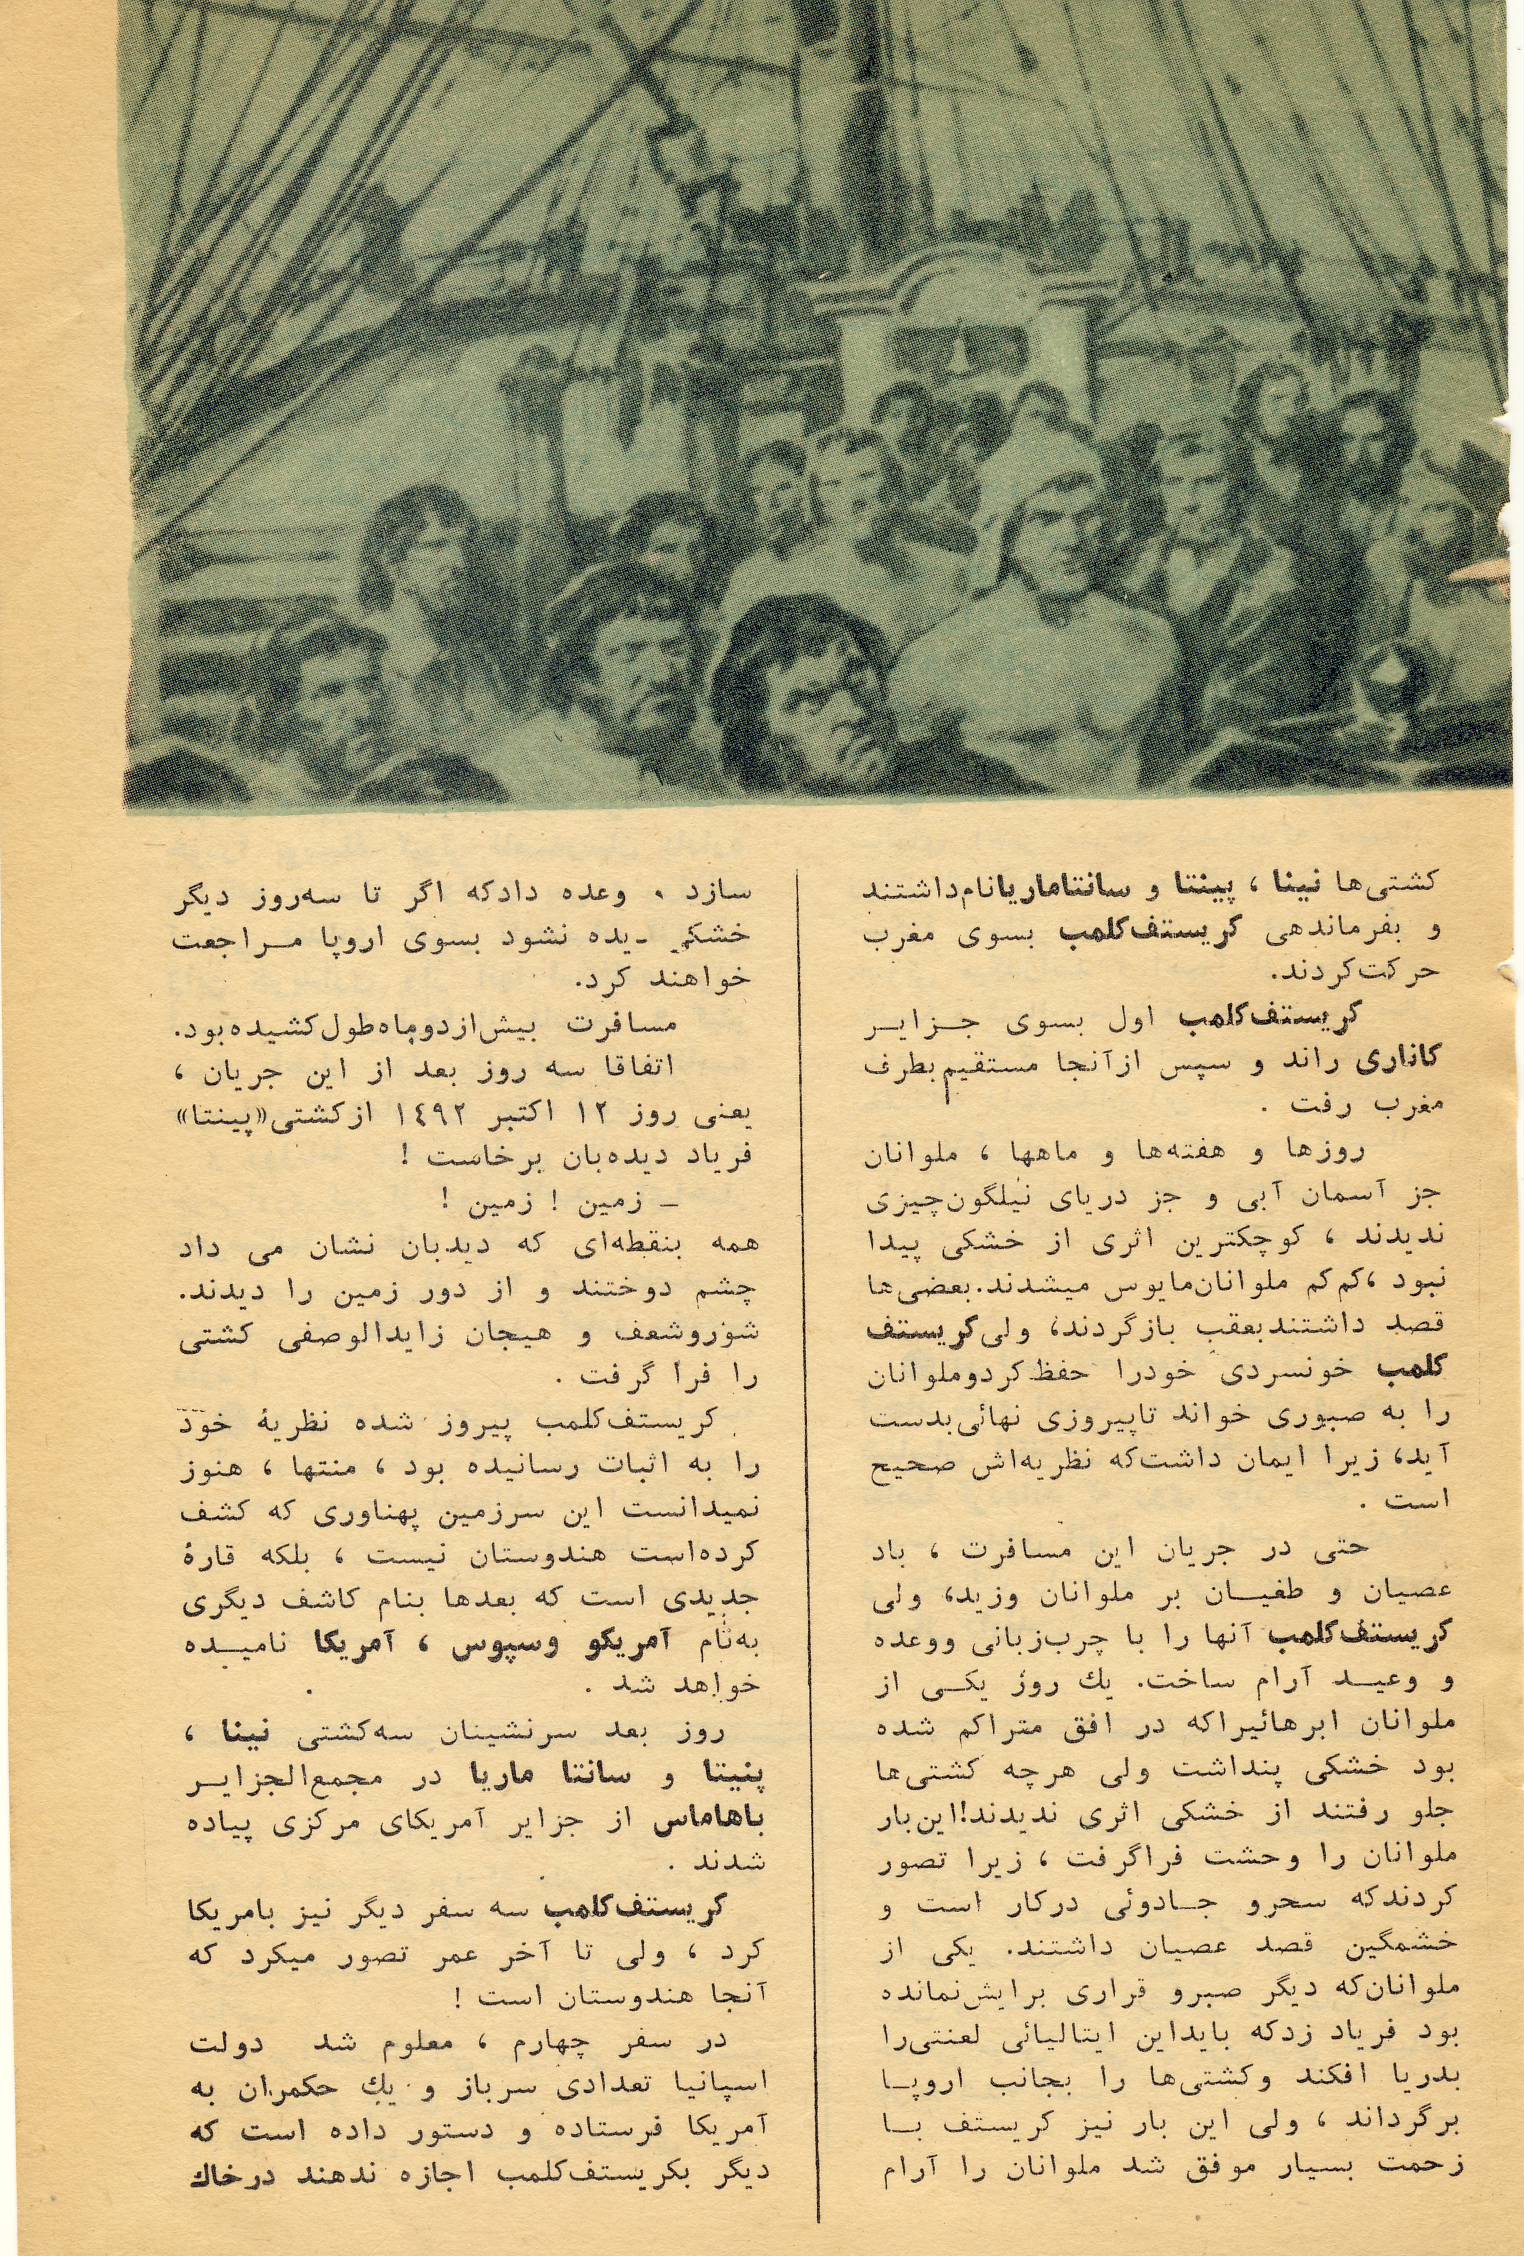 کشتی‌ها نینا ، پینتا و سانتاماریانام‌داشتند
و بفرماندهی کریستف‌کلمب بسوی مغرب
حرکت‌کردند.
کریستف‌کلمب اول بسوی جـزایـر
کاناری راند و سپس ازآنجا مستقیم‌بطرف
مغرب رفت .
روزها و هفته‌ها و ماهها ، ملوانان
جز آسمان آبی و جز دریای نیلگون‌چیزی
ندیدند ، کوچکترین اثری از خشکی پیدا
نبود ،کم‌کم ملوانان‌مایوس میشدند.بعضی‌ها
قصد داشتندبعقب بازگردند، ولی‌کریستف
کلمب خونسردی خودرا حفظ‌کردوملوانان
را به صبوری خواند تاپیروزی نهائی‌بدست
آید، زیرا ایمان داشت‌که نظریه‌اش صحیح
است .
حتی در جریان این مسافرت ، باد
عصیان و طغیـان بر ملوانان وزید، ولی
کریستف‌کلمب آنها را با چرب‌زبانی ووعده
و وعیـد آرام ساخت. یك روز یکـی از
ملوانان ابرهائیراکه در افق متراکم شده
بود خشکی پنداشت ولی هرچه کشتی‌ها
جلو رفتند از خشکی اثری ندیدند!این‌بار
ملوانان را وحشت فراگرفت ، زیرا تصور
کردندکه سحرو جـادوئی درکار است و
خشمگین قصد عصیان داشتند. یکی از
ملوانان‌که دیگر صبرو قراری برایش‌نمانده
بود فریاد زدکه بایداین ایتالیائی لعنتی‌را
بدریا افکند وکشتی‌ها را بجانب اروپـا
برگرداند ، ولی این بار نیز کریستف بـا
زحمت بسیار موفق شد ملوانان را آرام
سازد . وعده دادکه اگر تا سه‌روز دیگر
نشود بسوی اروپا مـراجعت
خواهند کرد.
مسافرت بیش‌ازدوماه‌طول‌کشیده‌بود.
اتفاقا سه روز بعد از این جریان ،
یعنی روز ۱۲ اکتبر ۱٤۹۲ ازکشتی«پینتا»
فریاد دیده‌بان برخاست !
ـ زمین ! زمین !
همه بنقطه‌ای که دیدبان نشان می داد
چشم دوختند و از دور زمین را دیدند.
شوروشعف و هیجان زایدالوصفی کشتی
را فرا گرفت .
کریستف‌کلمب پیروز شده نظریهٔ خود
را به اثبات رسانیده بود ، منتها ، هنوز
نمیدانست این سرزمین پهناوری که کشف
کرده‌است هندوستان نیست ، بلکه قارهٔ
جدیدی است که بعدها بنام کاشف دیگری
به‌نام آمریکو وسپوس ، آمریکا نامیـده
خواهد شد .
روز بعد سرنشینان سه‌کشتی نینا ،
پنیتا و سانتا ماریا در مجمع‌الجزایـر
باهاماس از جزایر آمریکای مرکزی پیاده
شدند .
کریستف‌کلمب سه سفر دیگر نیز بامریکا
کرد ، ولی تا آخر عمر تصور میکرد که
آنجا هندوستان است !
در سفر چهارم ، معلوم شد دولت
اسپانیا تعدادی سرباز و یك حکمران به
آمریکا فرستاده و دستور داده است که
دیگر بکریستف‌کلمب اجازه ندهند درخاك